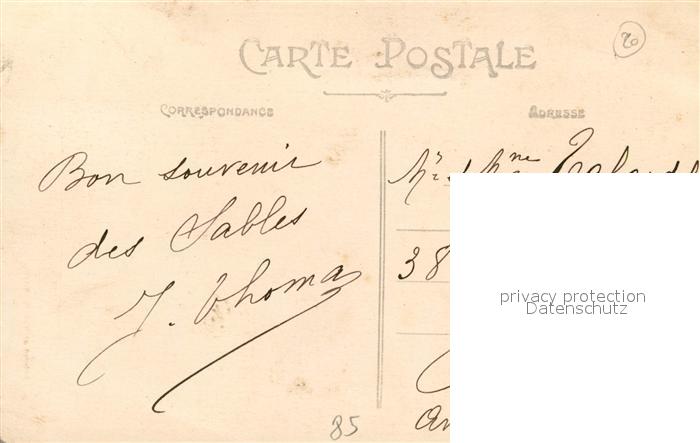 CARTE POSTALE
CORRESPONDANCE
ADRESSE
Bon souvenir
des Sables
J. Thomas
Mr Mme
38
privacy protection
Datenschutz
85